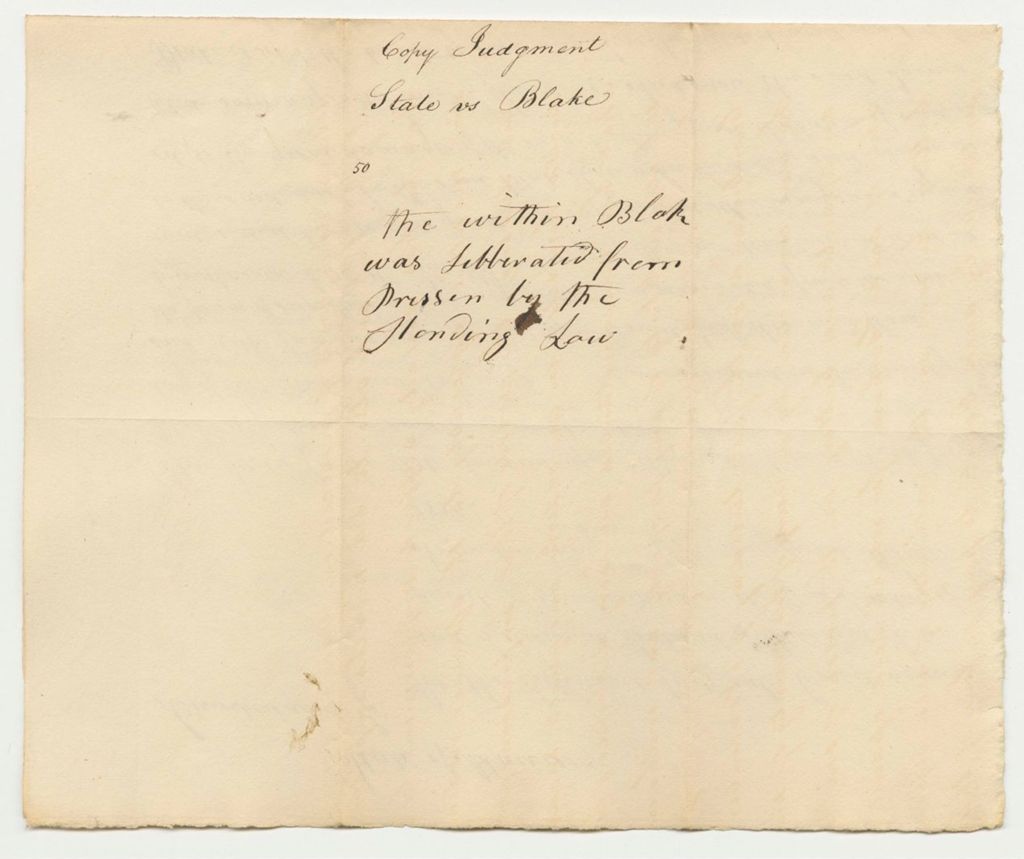 Copy Judgment
State vs Blake
50
the within Blak
was Libberated from
Prissen by the
Standing Law